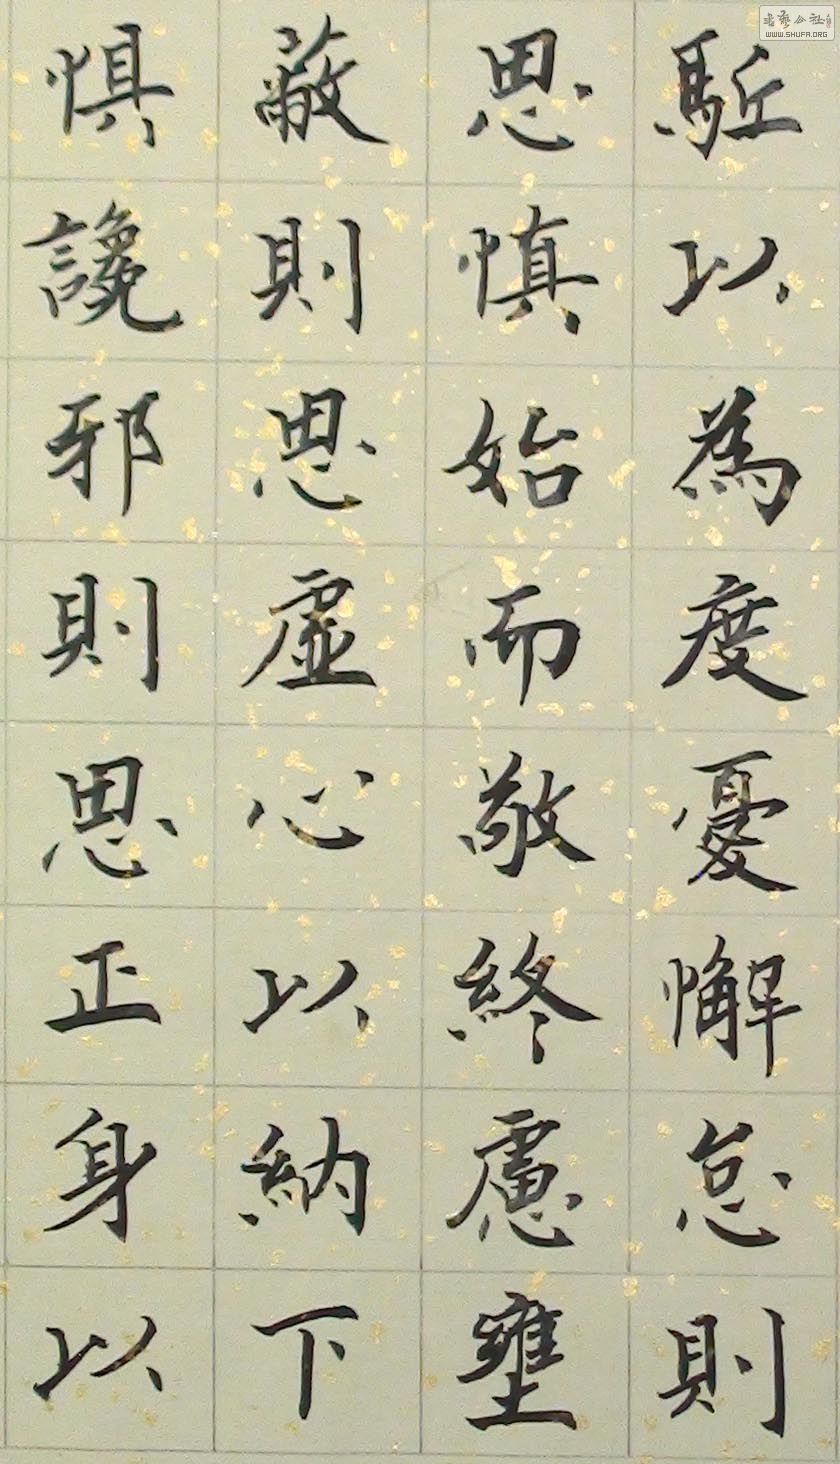 駈以為度憂懈怠則
思慎始而敬終慮壅
蔽則思虛心以納下
惧讒邪則思正身以
書藝公社
WWW.SHUFA.ORG